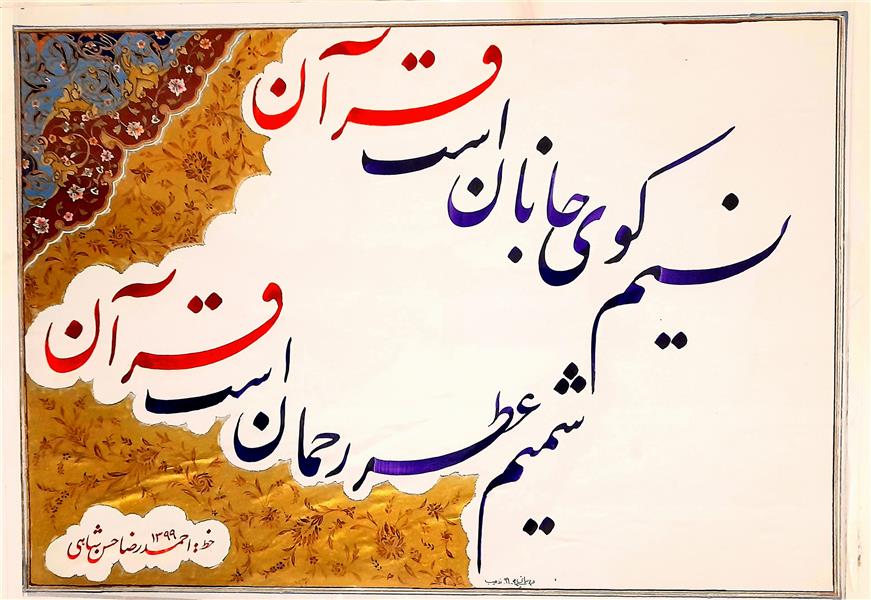 نسیم کوی جانان است قرآن
شمیم عطر رحمان است قرآن
خط: احمدرضا حسن شاهی ۱۳۹۹